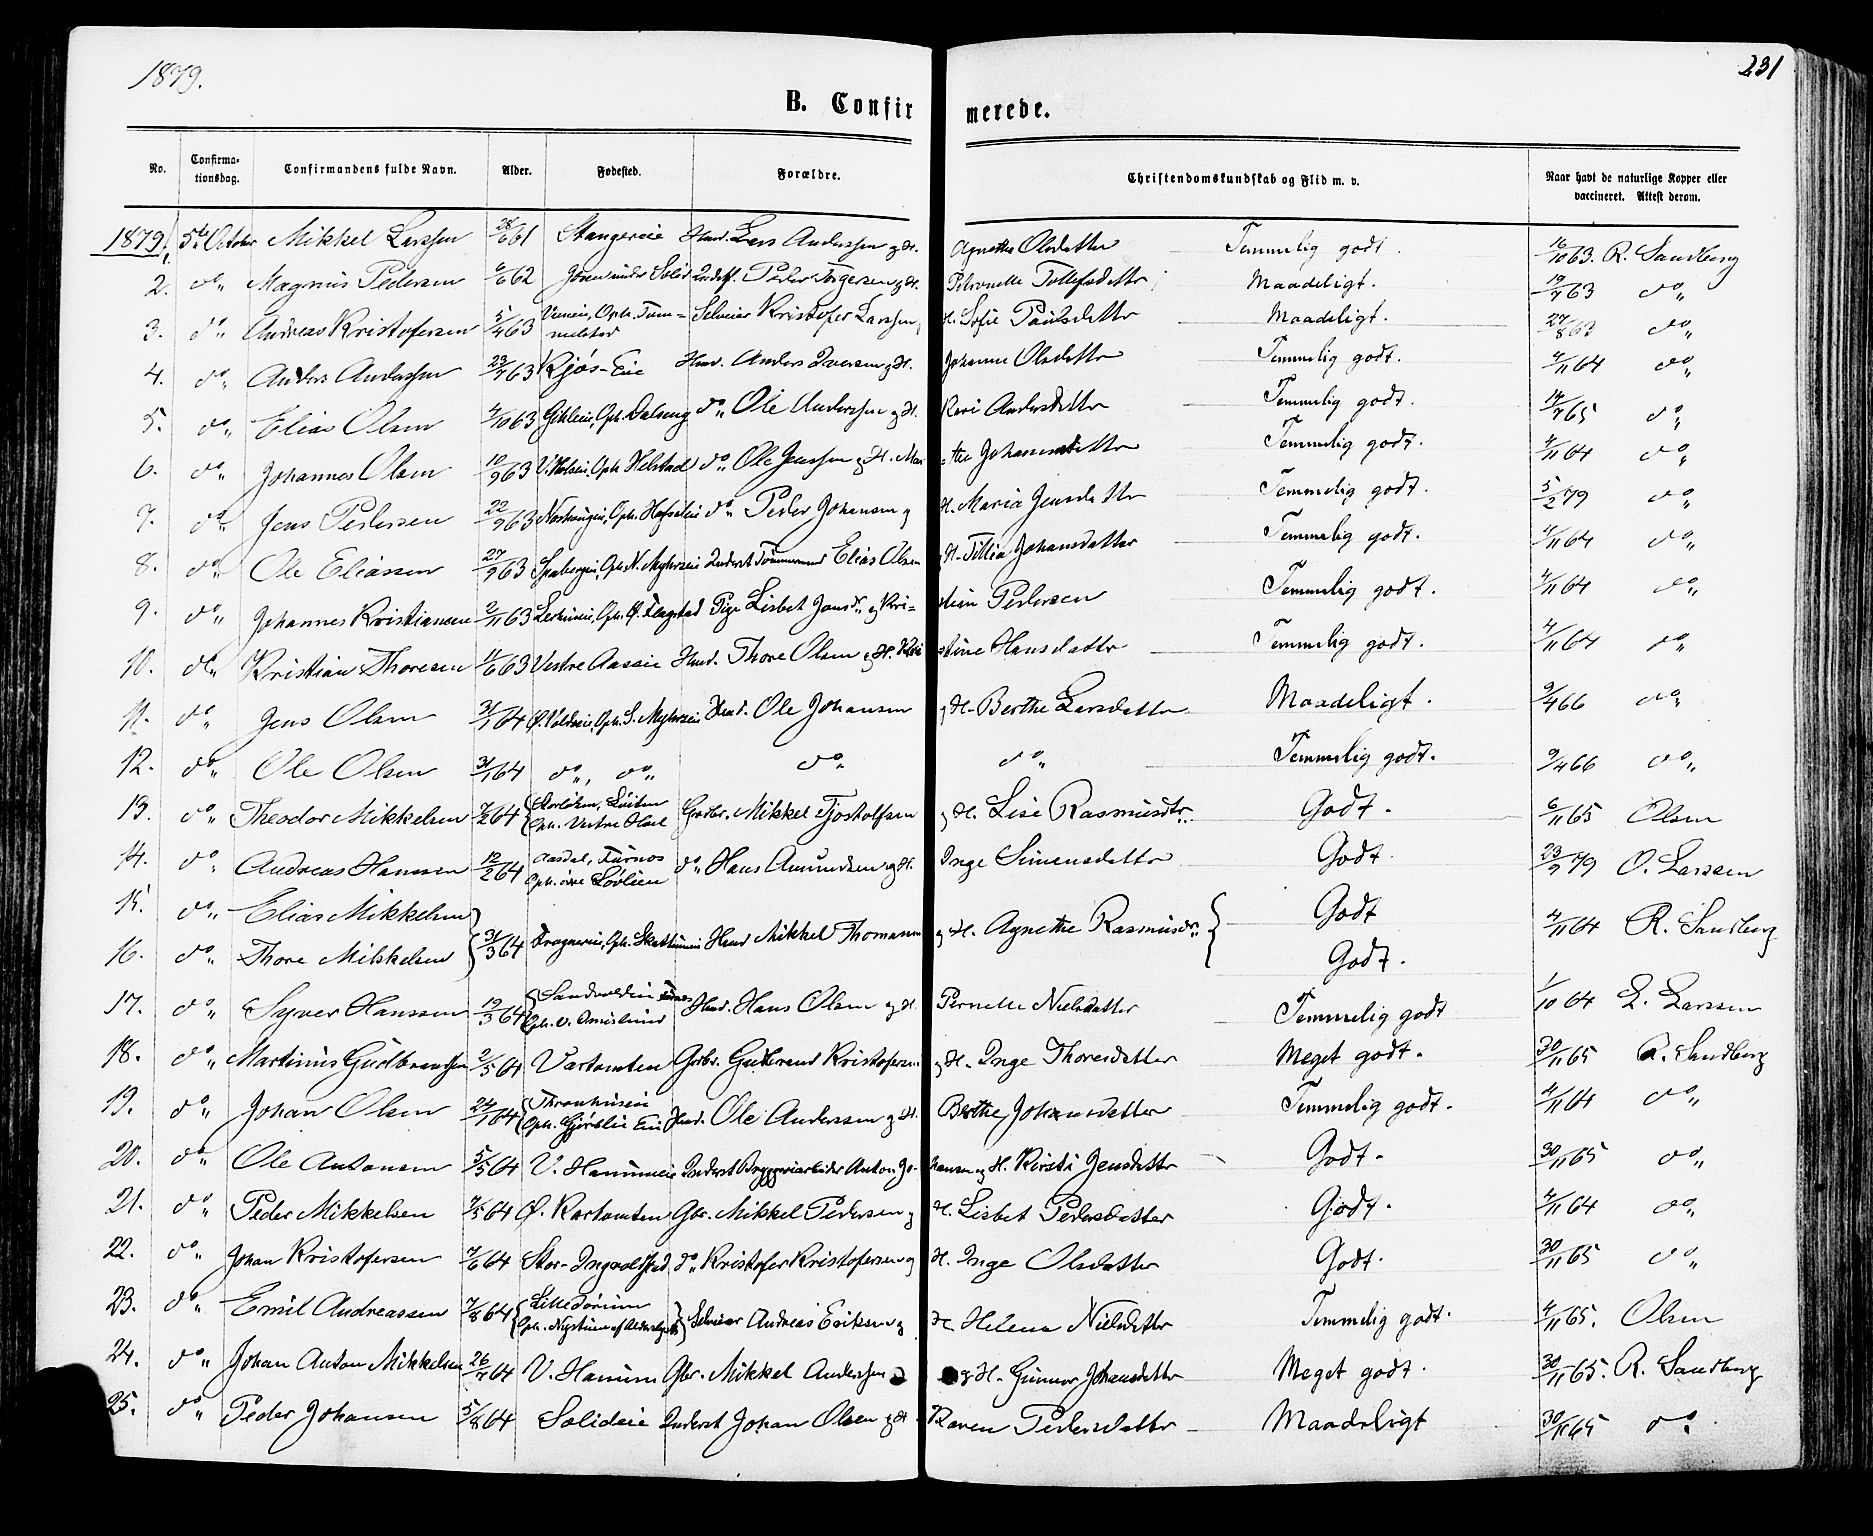 1879.
231
B. Confirmerede.
No. Confirmationsdag. Confirmandens fulde Navn. Alder. Fødested. Forældre. Christendomskundskab og Flid m. v. Naar havt de naturlige Kopper eller vaccineret. Attest derom.
1879 1. 5te October Mikkel Larssen 28/6 61 Stangereie Huusm. Lars Anderssen og H. Agnethe Olsdatter Temmelig godt. 16/10 63. R. Sandberg
2. do Magnus Pedersen 6/6 62 under Peder Torgersen og H. Petronelle Tollefsdatter Maadeligt. 19/7 63 do
3. do Andreas Kristofersen 5/4 63 Oph. Tommelstad Selveier Kristofer Larssen, H. Sofie Paulsdatter Maadeligt. 27/8 63 do
4. do Anders Anderssen 23/7 63 Kjøs-Eie Huusm. Anders Iversen og H. Johanne Olsdatter Temmelig godt. 4/11 64 do
5. do Elias Olsen 4/10 63 Oph. Dalseng do Ole Anderssen og H. Kari Andersdatter Temmelig godt. 14/7 65 do
6. do Johannes Olsen 10/9 63 Oph. Helstad do Ole Jenssen og H. Marthe Johannesdatter Temmelig godt. 4/11 64 do
7. do Jens Pedersen 22/9 63 Oph. do Peder Johansen og H. Maria Jensdatter Temmelig godt. 5/2 79 do
8. do Ole Eliassen 27/9 63 Oph. N. Myhrseie Inderst Tømmermand Elias Olsen og H. Tillia Johansdatter Temmelig godt. 4/11 64 do
9. do Johannes Kristiansen 2/11 63 Oph. Ø. Flagstad Pige Lisbet Jonsdr. og Kristian Pedersen Temmelig godt. 4/11 64 do
10. do Kristian Thoresen 11/6 63 Vestre Aaseie Huusm. Thore Olsen og H. Kristine Hansdatter Temmelig godt. 4/11 64 do
11. do Jens Olsen 31/1 64 Oph. S. Myhrseie Huusm. Ole Johansen og H. Berthe Larsdatter Maadeligt. 9/4 66 do
12. do Ole Olsen 31/1 64 do, do do do Temmelig godt. 9/4 66 do
13. do Theodor Mikkelsen 7/2 64 Løiten Oph. Vestre Grdbr. Mikkel Tjostolfsen og H. Lise Rasmusdtr. Godt. 6/11 65 Olsen
14. do Andreas Hanssen 12/2 64 Aasdal, Furnes Oph. øvre Løvlien do Hans Amundsen og H. Inge Simensdatter Godt. 23/9 79 O. Larssen
15. do Elias Mikkelsen 31/3 64 Oph. Huusm. Mikkel Thomassen og H. Agnethe Rasmusdr. Godt 4/11 64 R. Sandberg
16. do Thore Mikkelsen Godt.
17. do Syver Hanssen 19/3 64 Sandvoldeie Furnes Oph. v. Huusm. Hans Olsen og H. Pernelle Nielsdatter Temmelig godt 1/10 64 L. Larssen
18. do Martinus Gudbrandsen 2/5 64 Vartomten Grbr. Gudbrand Kristofersen og H. Inge Thoresdatter Meget godt. 30/11 65 R. Sandberg
19. do Johan Olsen 24/1 64 Oph. Huusm. Ole Anderssen og H. Berthe Johansdatter Temmelig godt. 4/11 64 do
20. do Ole Antonsen 5/5 64 V. Inderst Bryggeriarbeider Anton Johansen og H. Kirsti Jensdatter Godt. 30/11 65 do
21. do Peder Mikkelsen 7/5 64 Ø. Gbr. Mikkel Pedersen og H. Lisbet Pedersdatter Godt. 4/11 64 do
22. do Johan Kristofersen 7/6 64 Stor-Ingvoldstad do Kristofer Kristofersen og H. Inge Olsdatter Godt. 30/11 65 do
23. do Emil Andreassen 7/8 64 Oph. Selveier Andreas Eriksen og H. Helene Nielsdatter Temmelig godt. 4/11 65. Olsen
24. do Johan Anton Mikkelsen 26/7 64 V. Gbr. Mikkel Anderssen og H. Gunnor Johansdatter Meget godt. 30/11 65. R. Sandberg
25. do Peder Johansen 5/8 64 Solideie Inderst Johan Olsen og H. Karen Pedersdatter Maadeligt 30/11 65 do